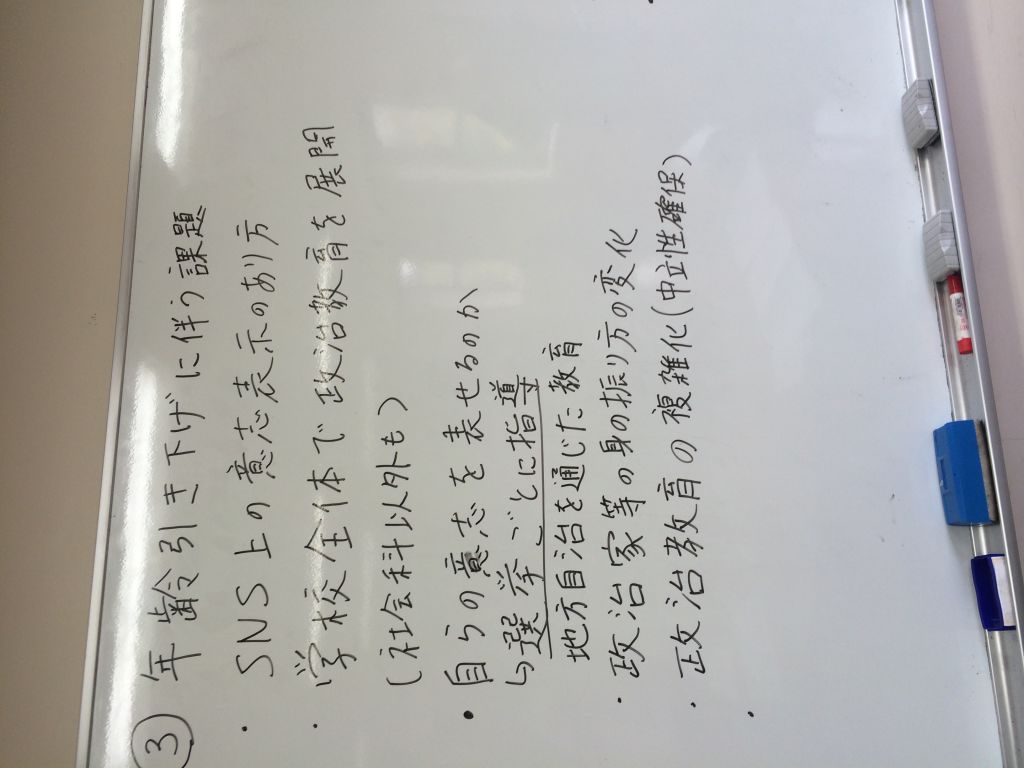 ③ 年齢引き下げに伴う課題
・SNS上の意志表示のあり方
・学校全体で政治教育を展開
(社会科以外も)
・自らの意志を表せるのか
↳選挙ごとに指導
地方自治を通じた教育
・政治家等の身の振り方の変化
・政治教育の複雑化(中立性確保)
・